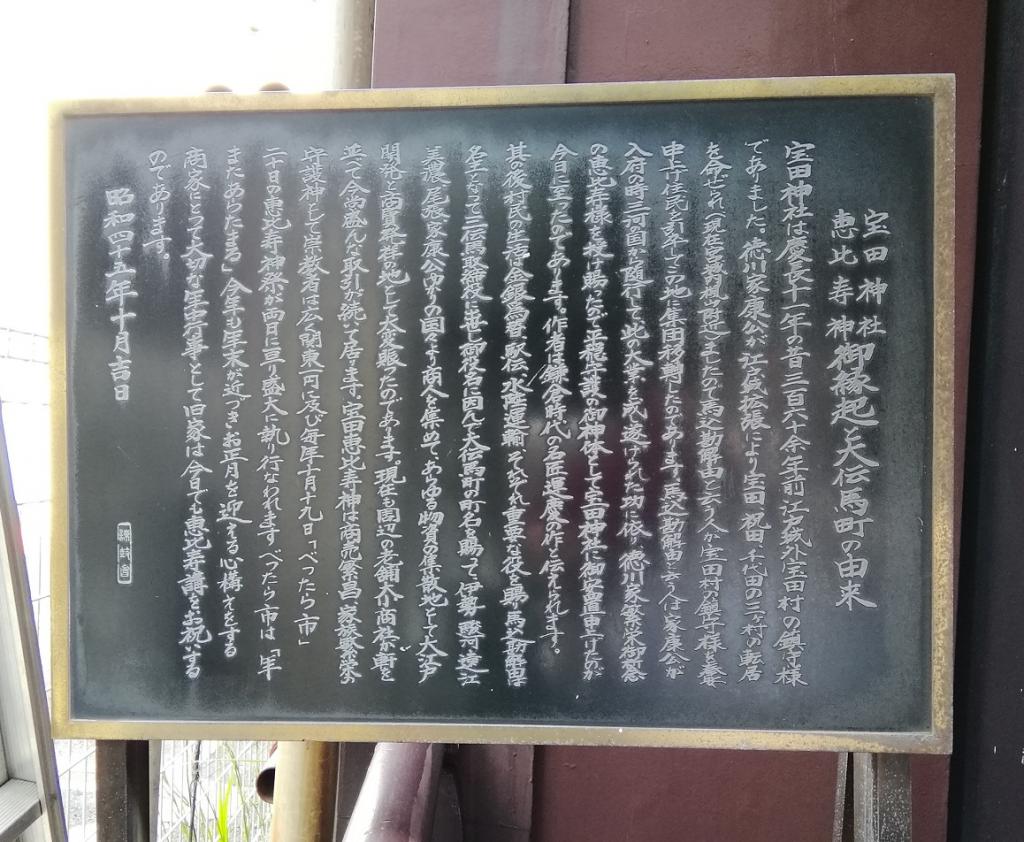 宝田神社
恵比寿神 御縁起と大伝馬町の由来
宝田神社は慶長十一年の昔三百六十余年前江戸城外宝田村の鎮守様
でありました。徳川家康公が江戸城拡張により宝田、祝田、千代田の三ヶ村の転居
を命ぜられ(現在宮城内楓山附近)ましたので馬込勘解由と云う人が宝田村の鎮守様を奉安
申上げ住民を引率してこの地に集団移転したのであります。馬込勘解由と云う人は家康公が
入府の時三河の国から随行して此の大業を成し遂げられた功に依り徳川家繁栄御祈念
の恵比寿様を授け賜ったので平穏守護の御神体として宝田神社に御安置申上げたのが
今日に至ったのであります。作者は鎌倉時代の名匠運慶の作と伝えられます。
其の後村民の生活は金銀為替、駅伝、水陸運輸、それぞれ重要な役を賜り馬込勘解由は
名主となって三伝馬取締役に出世し御役名に因んで大伝馬町の町名を賜って伊勢、駿河、遠江
美濃、尾張、家康公ゆかりの国々より商人を集めてあらゆる物資の集散地として大江戸
開発と商売発祥の地として大変賑ったのであります。現在も周辺の老舗大小商社が軒を
並べて今尚盛んな取引が続いて居ます。宝田恵比寿神は商売繁昌、家族繁栄の
守護神として崇敬者は広く関東一円に及び毎年十月十九日「べったら市」
二十日の恵比寿神祭が両日に亘り盛大に執り行なわれます。べったら市は「年
またあらたまる」今年も年末が近づきお正月を迎える心構えをする
商家にとって大切な年中行事として旧家は今日でも恵比寿講をお祝いする
のであります。
昭和四十五年十月吉日